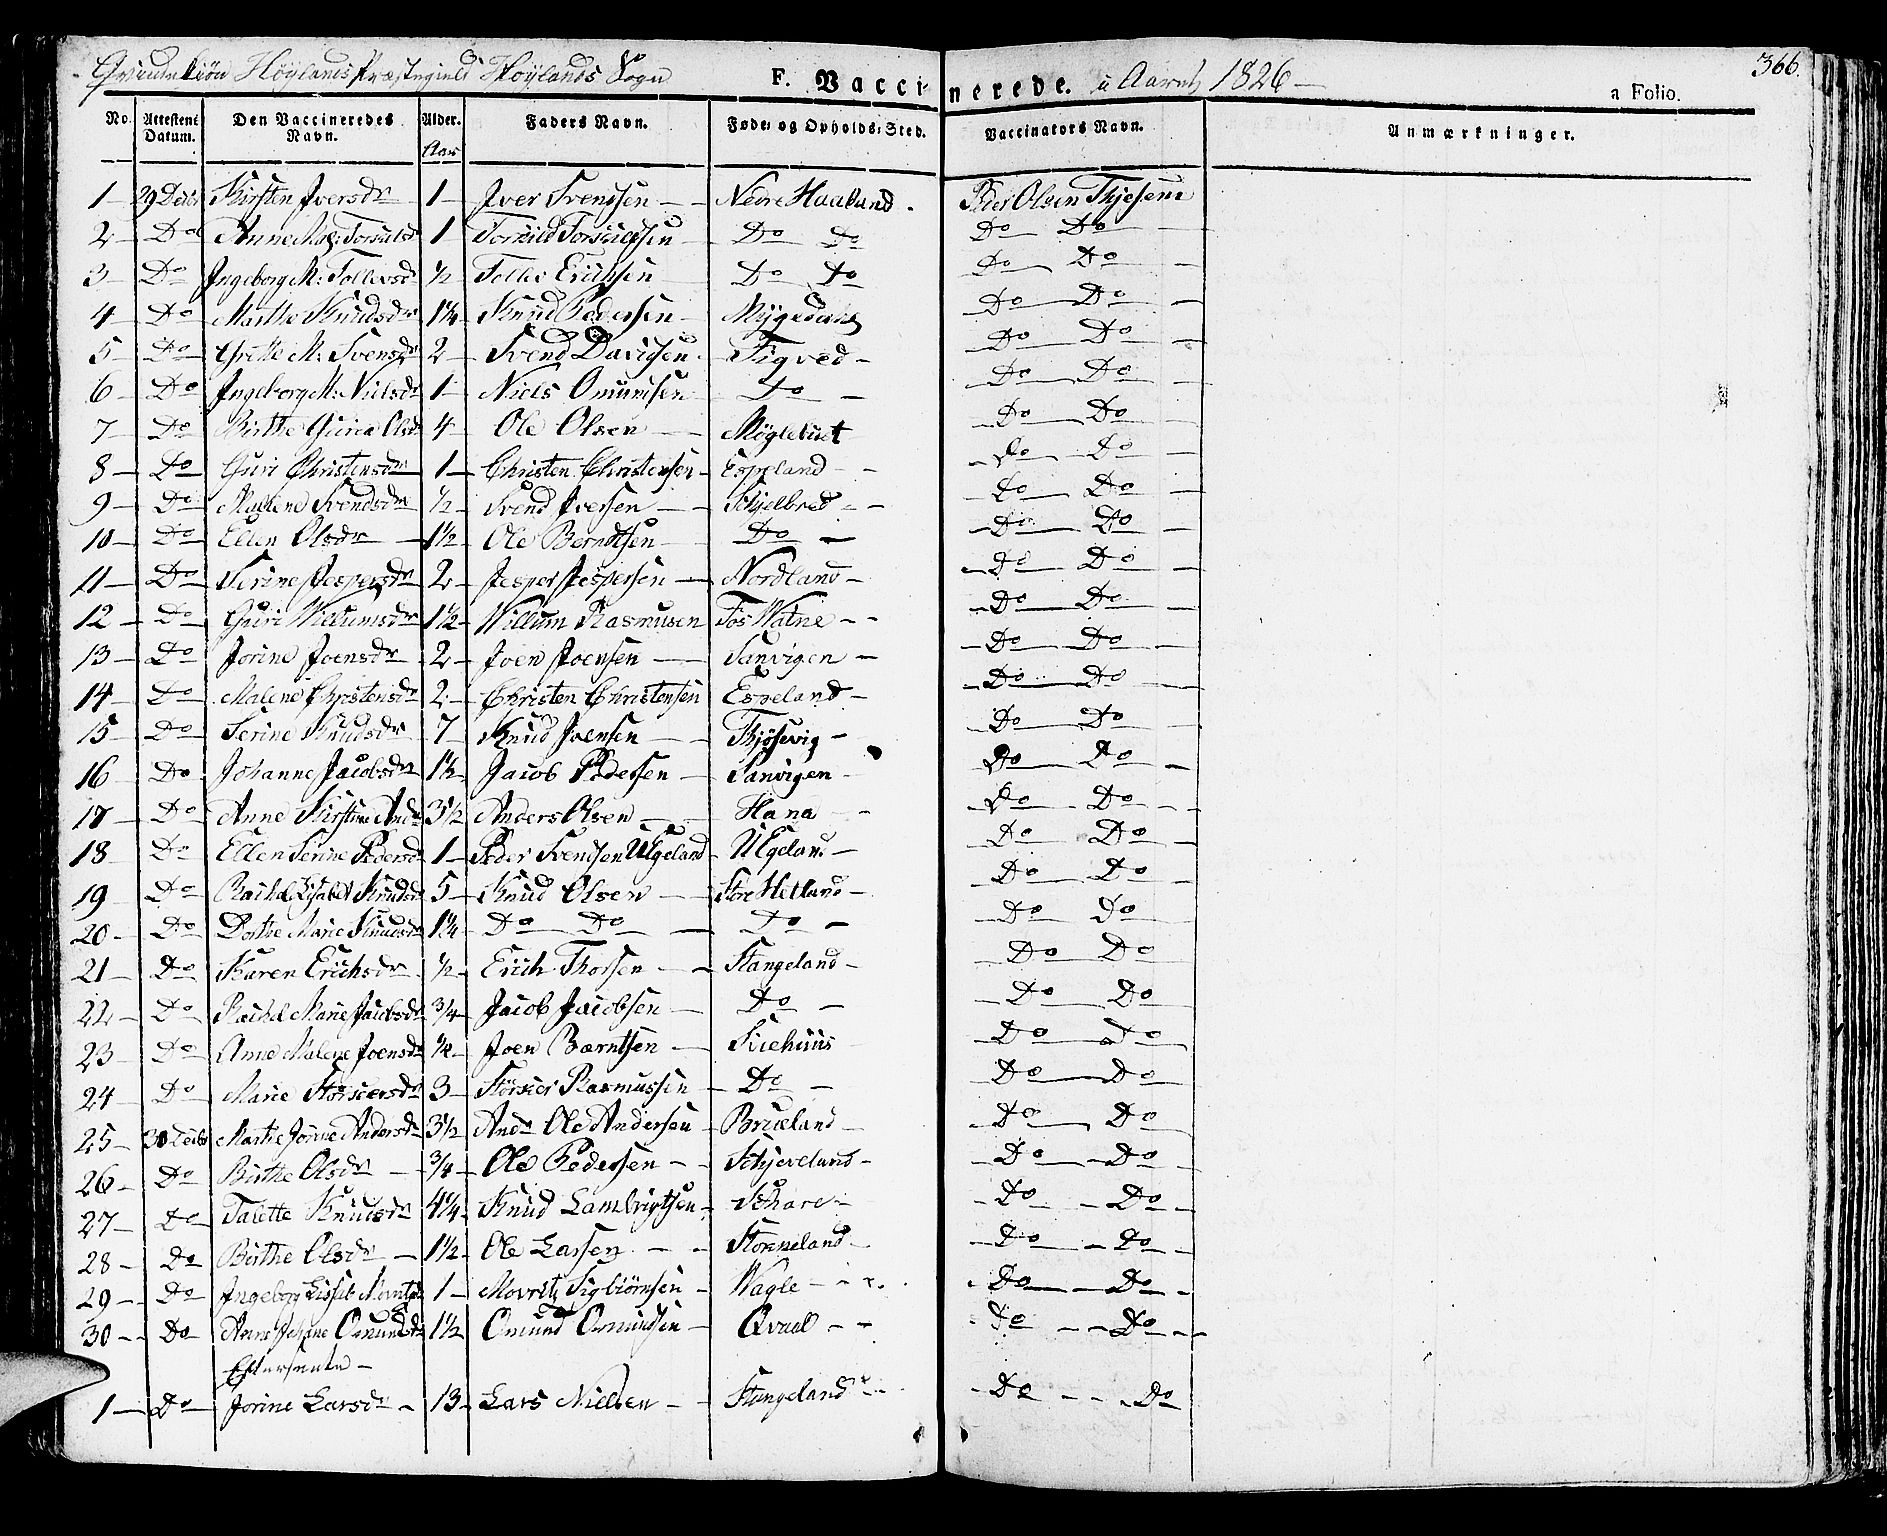 Qvindekiön Höylands Præstegield Höylands Sogn F. Vaccinerede. i Aaret 1826 366.
a Folio.
No. Attestens Datum. Den Vaccineredes Navn. Alder. Aar Faders Navn. Føde- og Opholds-Sted. Vaccinators Navn. Anmærkninger.
1 29 Decbr Kirsten Iversdr 1 Iver Svendsen Nedre Haaland Peder Olsen
2 Do Anne Mag: 1 Do Do Do Do
3 Do Ingeborg M: Tollevsdr 1/2 Tollev Erichsen Do Do Do Do
4 Do Marthe Knudsdr 1 1/4 Knud Pedersen Do Do
5 Do Grethe M: Svendsdr 2 Svend Davidsen Tigved Do Do
6 Do Ingeborg M: Nielsdr 1 Niels Omundsen Do Do Do
7 Do Birthe Olsd 4 Ole Olsen Do Do
8 Do Guri Christensdr 1 Christen Christensen Espeland Do Do
9 Do Malene Svendsdr 1/2 Svend Iversen Schjelbred Do Do
10 Do Ellen Olsdr 1 1/2 Ole Berndtsen Do Do Do
11 Do Serine Jespersdr 2 Jesper Jespersen Nordland Do Do
12 Do Guri Willumsdr 1 1/2 Willum Rasmusen Fos Watne Do Do
13 Do Jorine Joensdr 2 Joen Joensen Sanvigen Do Do
14 Do Malene Christensdr 2 Christen Christensen Espeland Do Do
15 Do Serine Knudsdr 7 Knud Joensen Do Do
16 Do Johanne Jacobsdr 1 1/2 Jacob Pedersen Sanvigen Do Do
17 Do Anne Kirstine And 3 1/2 Anders Olsen Hana Do Do
18 Do Ellen Serine Pedersd 1 Peder Svendsen Ulgeland Ulgeland Do Do
19 Do Rachel Lisabet Knudsd 5 Knud Olsen Store Hetland Do Do
20 Do Dorthe Marie Knudsd 1 1/4 Do Do Do Do Do
21 Do Karen Erichsdr 1/2 Erich Thorsen Stangeland Do Do
22 Do Rachel Marie Jacobsd 3/4 Jacob Jacobsen Do Do Do
23 Do Anne Malene Joensd 1/4 Joen Bærntsen Do Do
24 Do Marie 3 Rasmussen Do Do Do
25 30 Decbr Marthe Jorine Andersd 3 1/2 Ole Andersen Brueland Do Do
26 Do Birthe Olsdr 3/4 Ole Pedersen Schjeveland Do Do
27 Do Talette Knudsdr 4 1/4 Knud Lambrigtsen Do Do
28 Do Birthe Olsdr 1 1/2 Ole Larsen Do Do
29 Do Ingeborg 1 Movritz Sigbiörnsen Wagle Do Do
30 Do Omundsdr 1 1/2 Omund Omundsen Qvaal Do Do
1 Do Jorine Larsdr 13 Lars Nielsen Stangeland Do Do